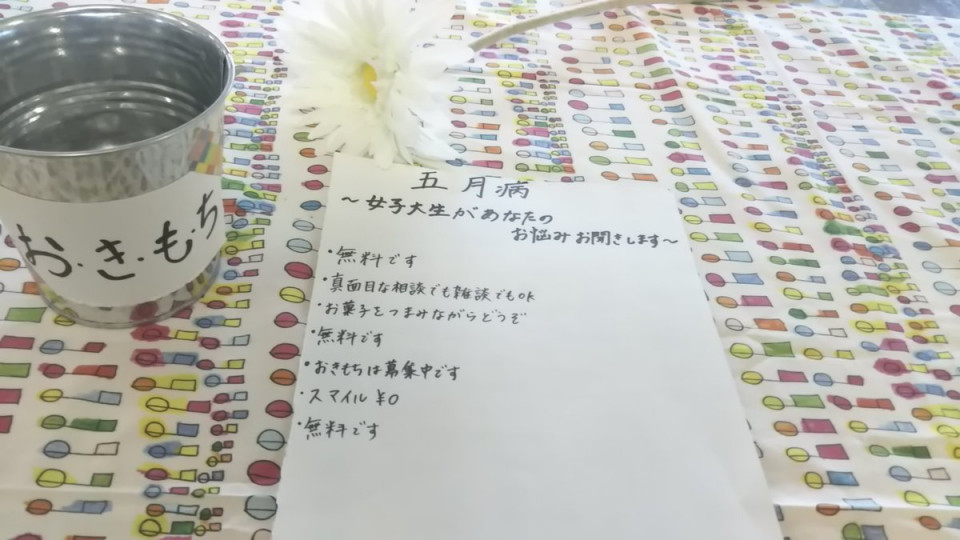 お・き・も・ち
五月病
～女子大生があなたの
お悩みお聞きします～
・無料です
・真面目な相談でも雑談でもOK
・お菓子をつまみながらどうぞ
・無料です
・おきもちは募集中です
・スマイル ¥0
・無料です